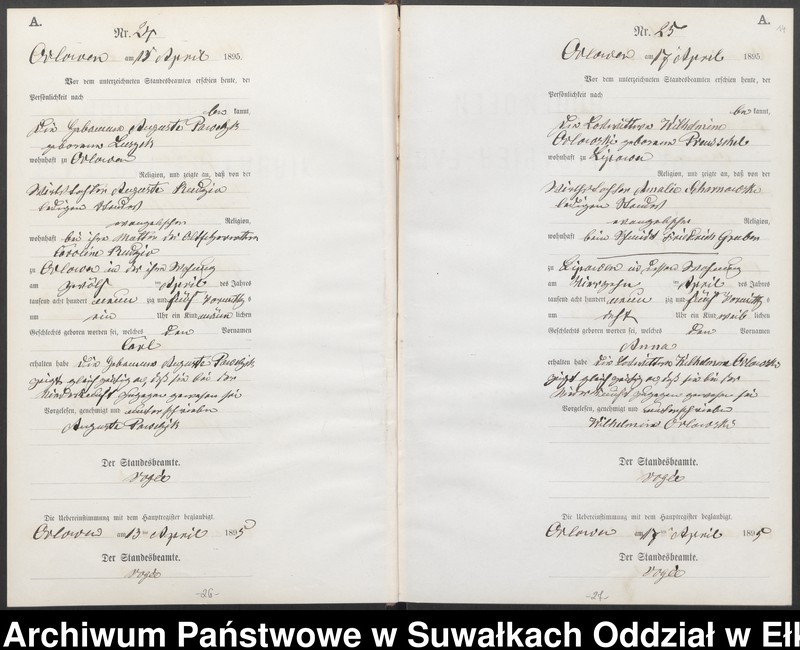 A.
Nr. 24
Orlowen am 13ten April 1895.
Vor dem unterzeichneten Standesbeamten erschien heute, der
Persönlichkeit nach
be kannt,
die Hebamme Auguste Pawelzik
geborene
wohnhaft zu Orlowen
Religion, und zeigte an, daß von der
Wirthstochter Auguste Rudzio
ledigen Standes
evangelischer Religion,
wohnhaft bei ihrer Mutter der
Caroline Rudzio
zu Orlowen in der ihrer Wohnung
am zwölf ten April des Jahres
tausend acht hundert neun zig und fünf Vormittags
um ein Uhr ein Kind männlichen
Geschlechts geboren worden sei, welches den Vornamen
Carl
erhalten habe. Die Hebamme Auguste Pawelzik
zeigt gleichzeitig an, daß sie bei der
Niederkunft zugegen gewesen sei
Vorgelesen, genehmigt und unterschrieben
Auguste Pawelzik
Der Standesbeamte.
Vogée
Die Uebereinstimmung mit dem Hauptregister beglaubigt.
Orlowen am 13ten April 1895
Der Standesbeamte.
Vogée
-26-
A.
Nr. 25
Orlowen am 17ten April 1895.
Vor dem unterzeichneten Standesbeamten erschien heute, der
Persönlichkeit nach
be kannt,
die Wilhelmine
Orlowski geborene
wohnhaft zu Lipowen
Religion, und zeigte an, daß von der
Wirthstochter Amalie
ledigen Standes
evangelischer Religion,
wohnhaft beim Schmidt Friedrich Gruber
zu Lipowen in dessen Wohnung
am vierzehn ten April des Jahres
tausend acht hundert neun zig und fünf Vormittags
um acht Uhr ein Kind weiblichen
Geschlechts geboren worden sei, welches den Vornamen
Anna
erhalten habe. Die Wilhelmine Orlowski
zeigt gleichzeitig an, daß sie bei der
Niederkunft zugegen gewesen sei
Vorgelesen, genehmigt und unterschrieben
Wilhelmine Orlowski
Der Standesbeamte.
Vogée
Die Uebereinstimmung mit dem Hauptregister beglaubigt.
Orlowen am 17ten April 1895
Der Standesbeamte.
Vogée
Archiwum Państwowe w Suwałkach Oddział w Ełk